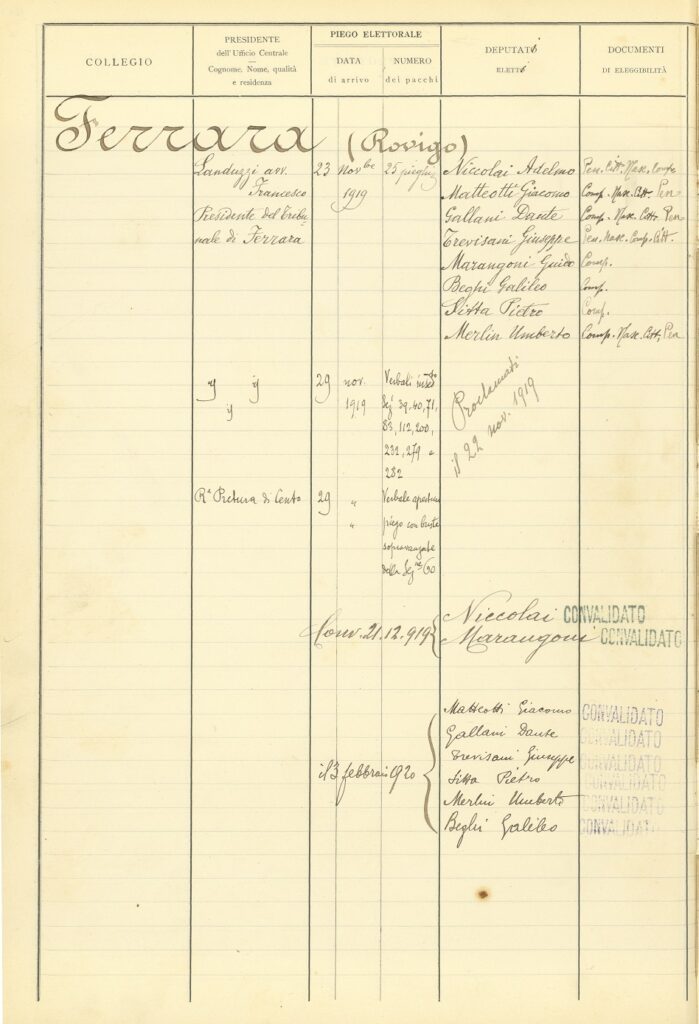 COLLEGIO
PRESIDENTE
dell'Ufficio Centrale
Cognome, Nome, qualità
e residenza
PIEGO ELETTORALE
DATA
di arrivo
NUMERO
dei pacchi
DEPUTATi
ELETTi
DOCUMENTI
DI ELEGGIBILITÀ
Ferrara (Rovigo)
Landuzzi avv. 23 Novbre 25 Niccolai Adelmo Pen. Citt. Nasc. Comp.
Francesco 1919 Matteotti Giacomo Comp. Nasc. Citt. Pen
Presidente del Tribu- Gallani Dante Comp. Nasc. Citt. Pen
nale di Ferrara Trevisani Giuseppe Pen. Nasc. Comp. Citt.
Marangoni Guido Comp.
Beghi Galileo Comp.
Sitta Pietro Comp.
Merlin Umberto Comp. Nasc. Citt. Pen
Proclamati
il 22 nov. 1919
29 nov. Verbali
1919 Sez. 39, 40, 71,
83, 112, 200,
232, 279 e
282
Ra Pretura di Cento 29 " Verbale apertura
" piego con buste
dalla Sez. 60
Conv. 21.12.919 { Niccolai CONVALIDATO
Marangoni CONVALIDATO
Matteotti Giacomo CONVALIDATO
Gallani Dante CONVALIDATO
Trevisani Giuseppe CONVALIDATO
il 3 febbraio 1920 { Sitta Pietro CONVALIDATO
Merlin Umberto CONVALIDATO
Beghi Galileo CONVALIDATO